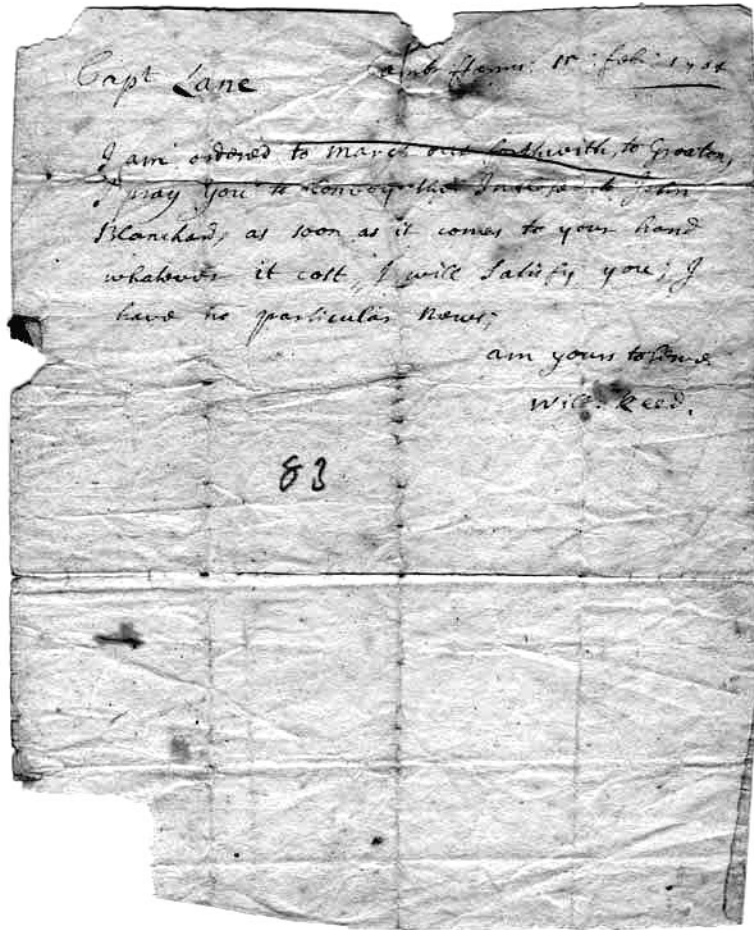 Capt Lane
ffarms: 15: feb: 1704
I am ordered to march out forthwith, to Groaton,
I pray you to Convey this Inclosed to John
Blanchard, as soon as it comes to your hand
whatever it cost, I will Satisfy you; I
have no particular News;
am yours to serve
Will. Reed.
83